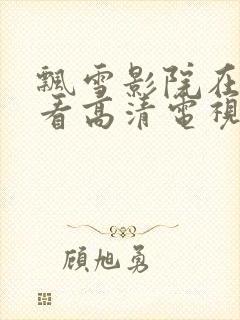 飄雪影院在
看高清電視
顧旭勇